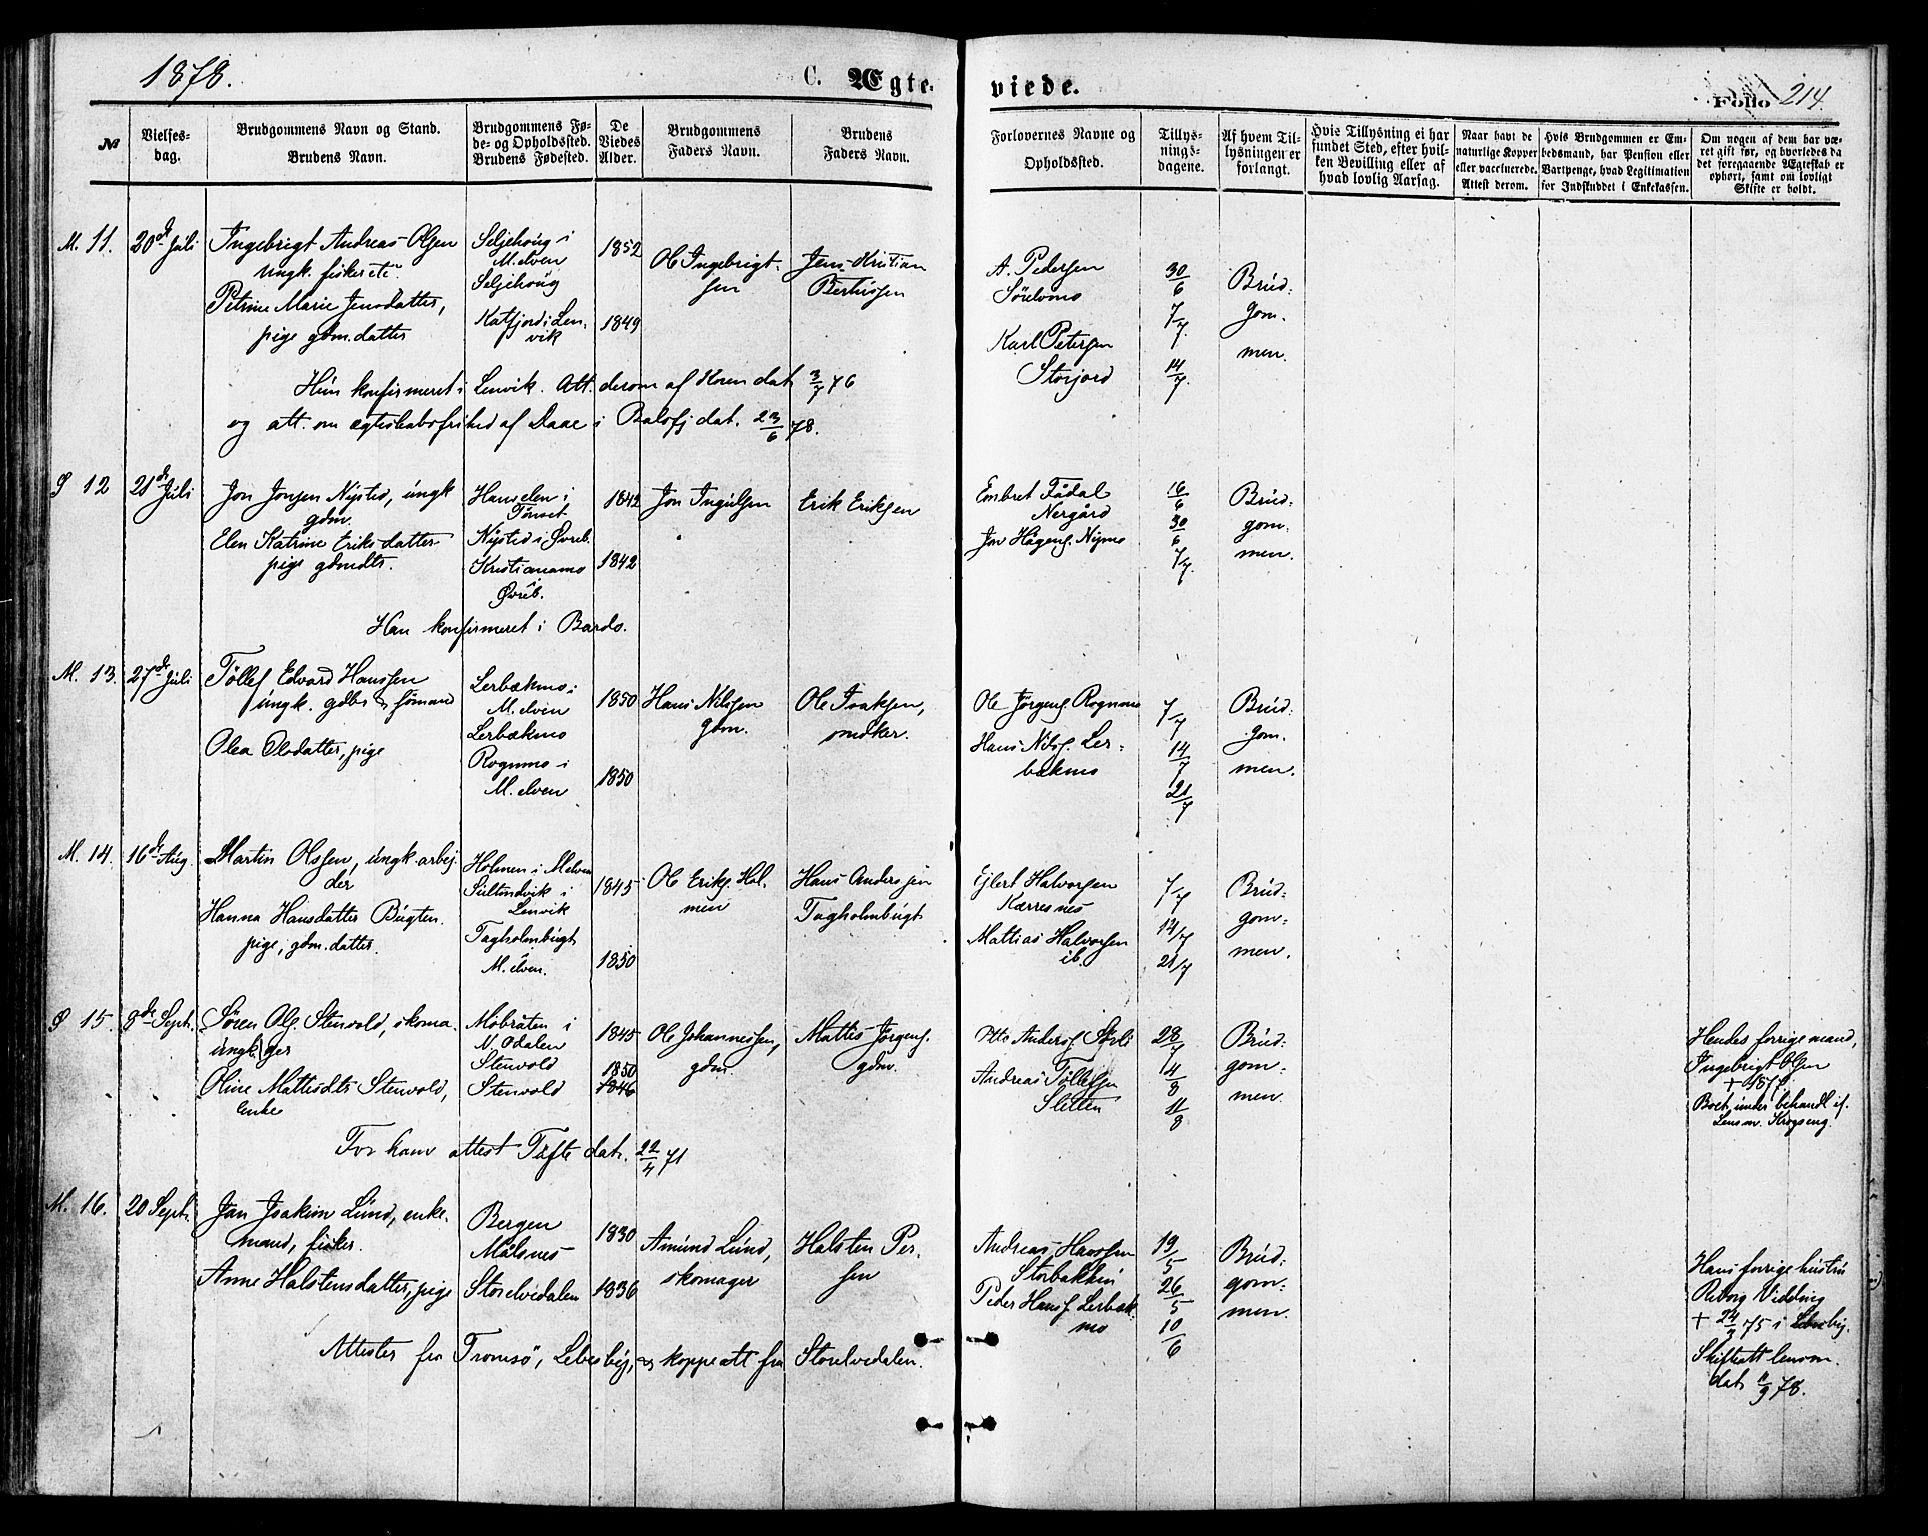 1878.
C. Ægte-
viede.
Folio 214.
№
Vielses-
dag.
Brudgommens Navn og Stand.
Brudens Navn.
Brudgommens Fø-
de- og Opholdssted.
Brudens Fødested.
De
Viedes
Alder.
Brudgommens
Faders Navn.
Brudens
Faders Navn.
Forlovernes Navne og
Opholdssted.
Tillys-
nings-
dagene.
Af hvem Til-
lysningen er
forlangt.
Hvis Tillysning ei har
fundet Sted, efter hvil-
ken Bevilling eller af
hvad lovlig Aarsag.
Naar havt de
naturlige Kopper
eller vaccinerede.
Attest derom.
Hvis Brudgommen er Em-
bedsmand, har Pension eller
Vartpenge, hvad Legitimation
for Indskuddet i Enkekassen.
Om nogen af dem har væ-
ret gift før, og hvorledes da
det foregaaende Ægteskab er
ophørt, samt om lovligt
Skifte er holdt.
M. 11.
20de Juli
Ingebrigt Andreas Olsen
ungk. fisker etc.
Petrine Marie Jensdatter,
pige gdm.datter
Seljehoug i
M.elven
Seljehoug
Katfjord i Len-
vik
1852
1849
Ole Ingebrigt-
sen
Jens Kristian
Berthussen
A. Pedersen
Sörelvmo
Karl Petersen
Storjord
30/6
7/7.
14/7.
Brud-
gom-
men.
Hun konfirmeret i Lenvik. Att. derom af Koren dat. 3/7 76
og att. om ægteskabsfrihed af Daae i Balsfj dat. 23/6 78.
S 12
21de Juli
Jon Jonsen Nysted, ungk
gdm.
Elen Katrine Eriksdatter
pige gdmdtr.
Tönset
Nysted i Øvreb.
Kristianamo
Øvreb.
1842
1842
Jon Ingulsen
Erik Eriksen
Embret Fådal
Nergård
Jon Hågens. Nymo
16/6
30/6
7/7.
Brud-
gom-
men.
Han konfirmeret i Bardo.
M. 13.
27de Juli
Töllef Edvard Hanssen
ungk. gdbr & sömand
Olea Olsdatter, pige
Lerbækmo i
M.elven
Lerbækmo
Rognmo i
M.elven
1850
1850
Hans Nilssen
gdm.
Ole Isaksen,
snedker.
Ole Jörgens. Rognmo
Hans Nilss. Ler-
bækmo
7/7
14/7
21/7
Brud-
gom-
men.
M. 14.
16de Aug.
Martin Olssen, ungk. arbej-
der
Hanna Hansdatter Bugten.
pige, gdm.datter.
Holmen i Melven
Sultindvik i
Lenvik
Tagholmbugt
M.elven.
1845
1850
Ole Eriks. Hol-
men
Hans Anderssen
Tagholmbugt
Ejlert Halvorsen
Karresnes
Mattias Halvorsen
ib.
7/7
14/7
21/7
Brud-
gom-
men.
S 15.
8de Sept.
Sören Ols. Stenvold, skoma-
ungk. ger
Oline Mattisdtr Stenvold,
enke
Mobråten i
N. Odalen
Stenvold
Stenvold
1845
1850
1846
Ole Johannessen,
gdm.
Mattis Jörgens.
gdm.
Otto Anders. Sörli
Andreas Töllefsen
Sletten
28/7
14/8
11/8
Brud-
gom-
men.
Hendes forrige mand,
Ingebrigt Olsen
Boet under behandl if.
Lensm. Krogseng.
For ham attest Tufte dat. 22/4 71
M. 16.
20 Sept.
Jan Joakim Lund, enke-
mand, fisker.
Anne Halstensdatter, pige
Bergen
Målsnes
Storelvedalen
1830
1836
Amund Lund,
skomager
Halsten Per-
sen
Andreas Hanssen
Storbakken
Peder Hanss. Lerbæk
mo
19/5
26/5
10/6
Brud-
gom-
men.
Hans forrige hustru
Vidding
75 i Lebesby.
Skifteatt lensm.
dat. 11/9 78.
Attester fra Tromsö, Lebesby, og koppeatt fra Storelvedalen.